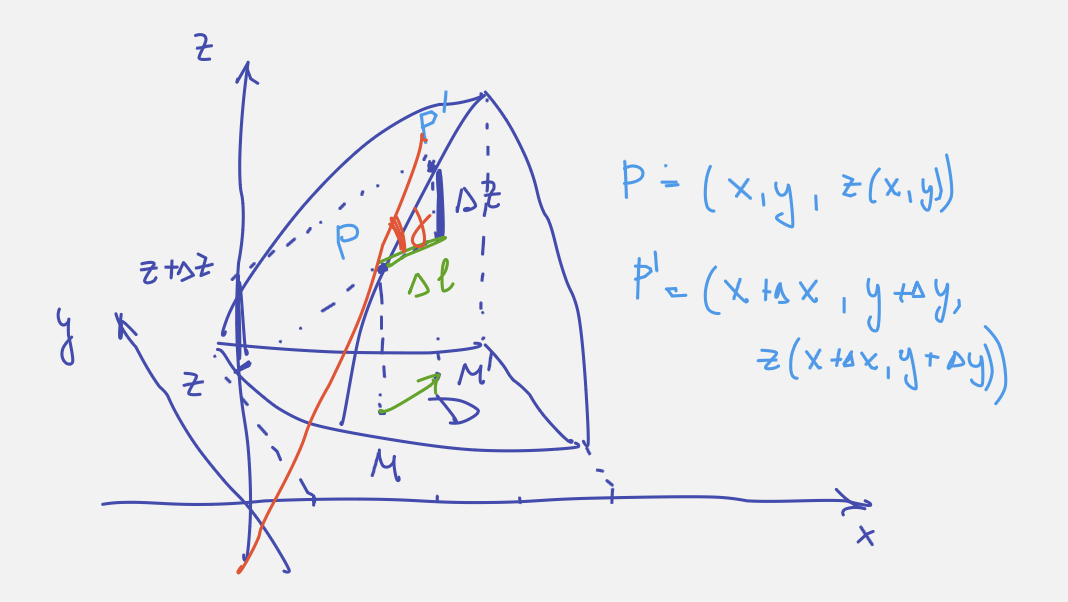 z
P'
Δz
P
α
z+Δz
Δl
y
z
M'
D
M
x
P = (x, y, z(x,y))
P' = (x+Δx, y+Δy,
z(x+Δx, y+Δy))